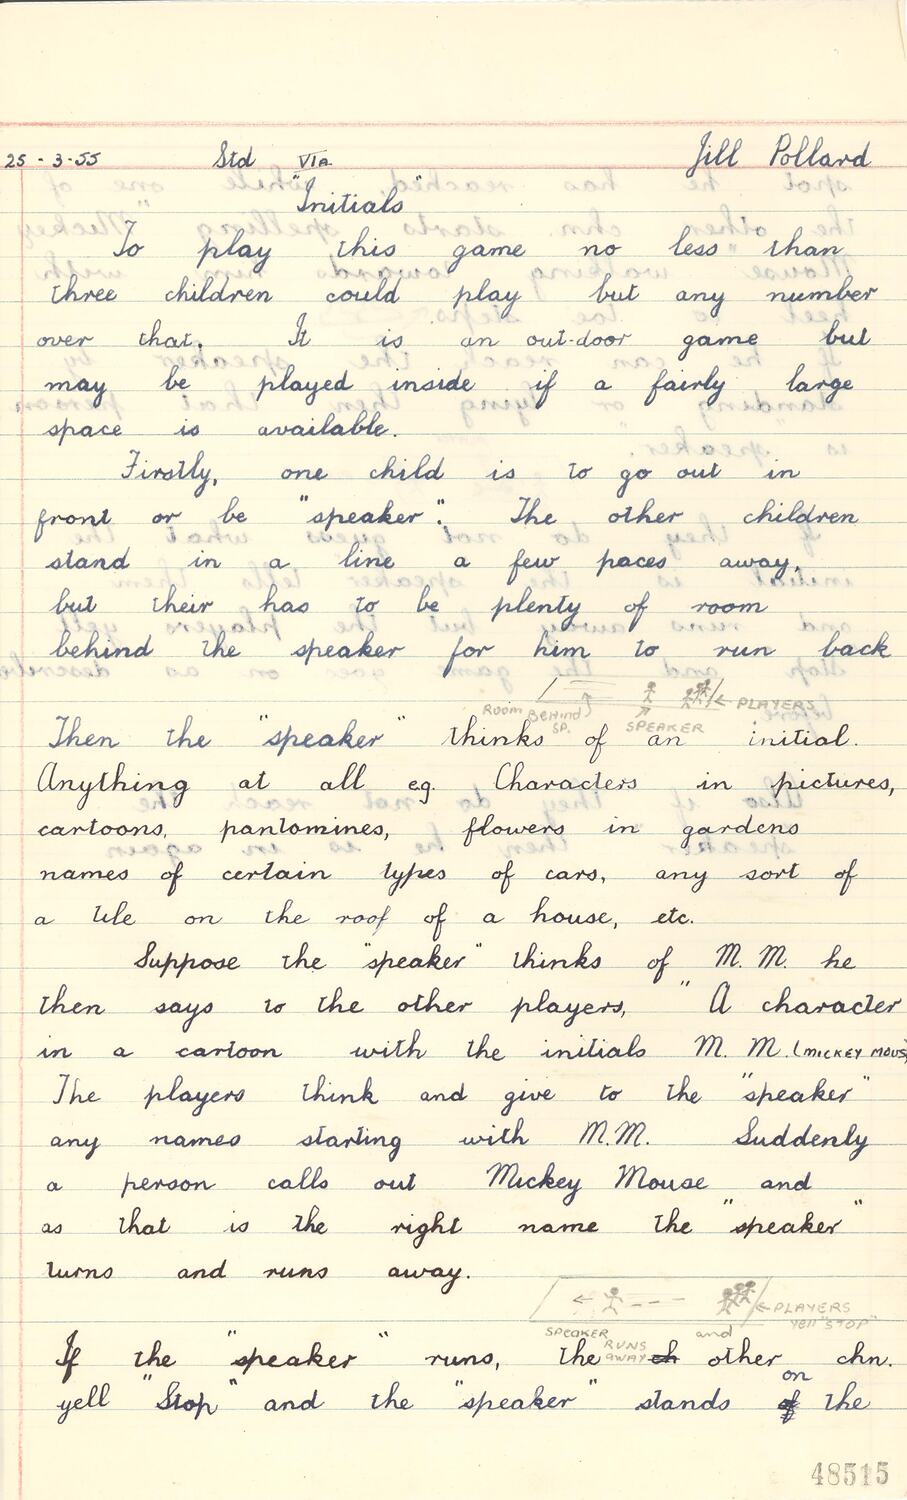 25 - 3-55 Std VIA. Jill Pollard
"Initials"
To play this game no less than
three children could play but any number
over that. It is an out-door game but
may be played inside if a fairly large
space is available.
Firstly, one child is to go out in
front or be "speaker". The other children
stand in a line a few paces away,
but their has to be plenty of room
behind the speaker for him to run back
ROOM BEHIND SP. SPEAKER PLAYERS
Then the "speaker" thinks of an initial.
Anything at all eg. Characters in pictures,
cartoons, pantomines, flowers in gardens
names of certain types of cars, any sort of
a tile on the roof of a house, etc.
Suppose the "speaker" thinks of M.M. he
then says to the other players, "A character
in a cartoon with the initials M.M. (MICKEY MOUS
The players think and give to the "speaker"
any names starting with M.M. Suddenly
a person calls out Mickey Mouse and
as that is the right name the "speaker"
turns and runs away.
SPEAKER RUNS AWAY PLAYERS YELL "STOP"
and
If the "speaker" runs, the ch other chn.
on
yell "Stop" and the "speaker" stands of the
48515